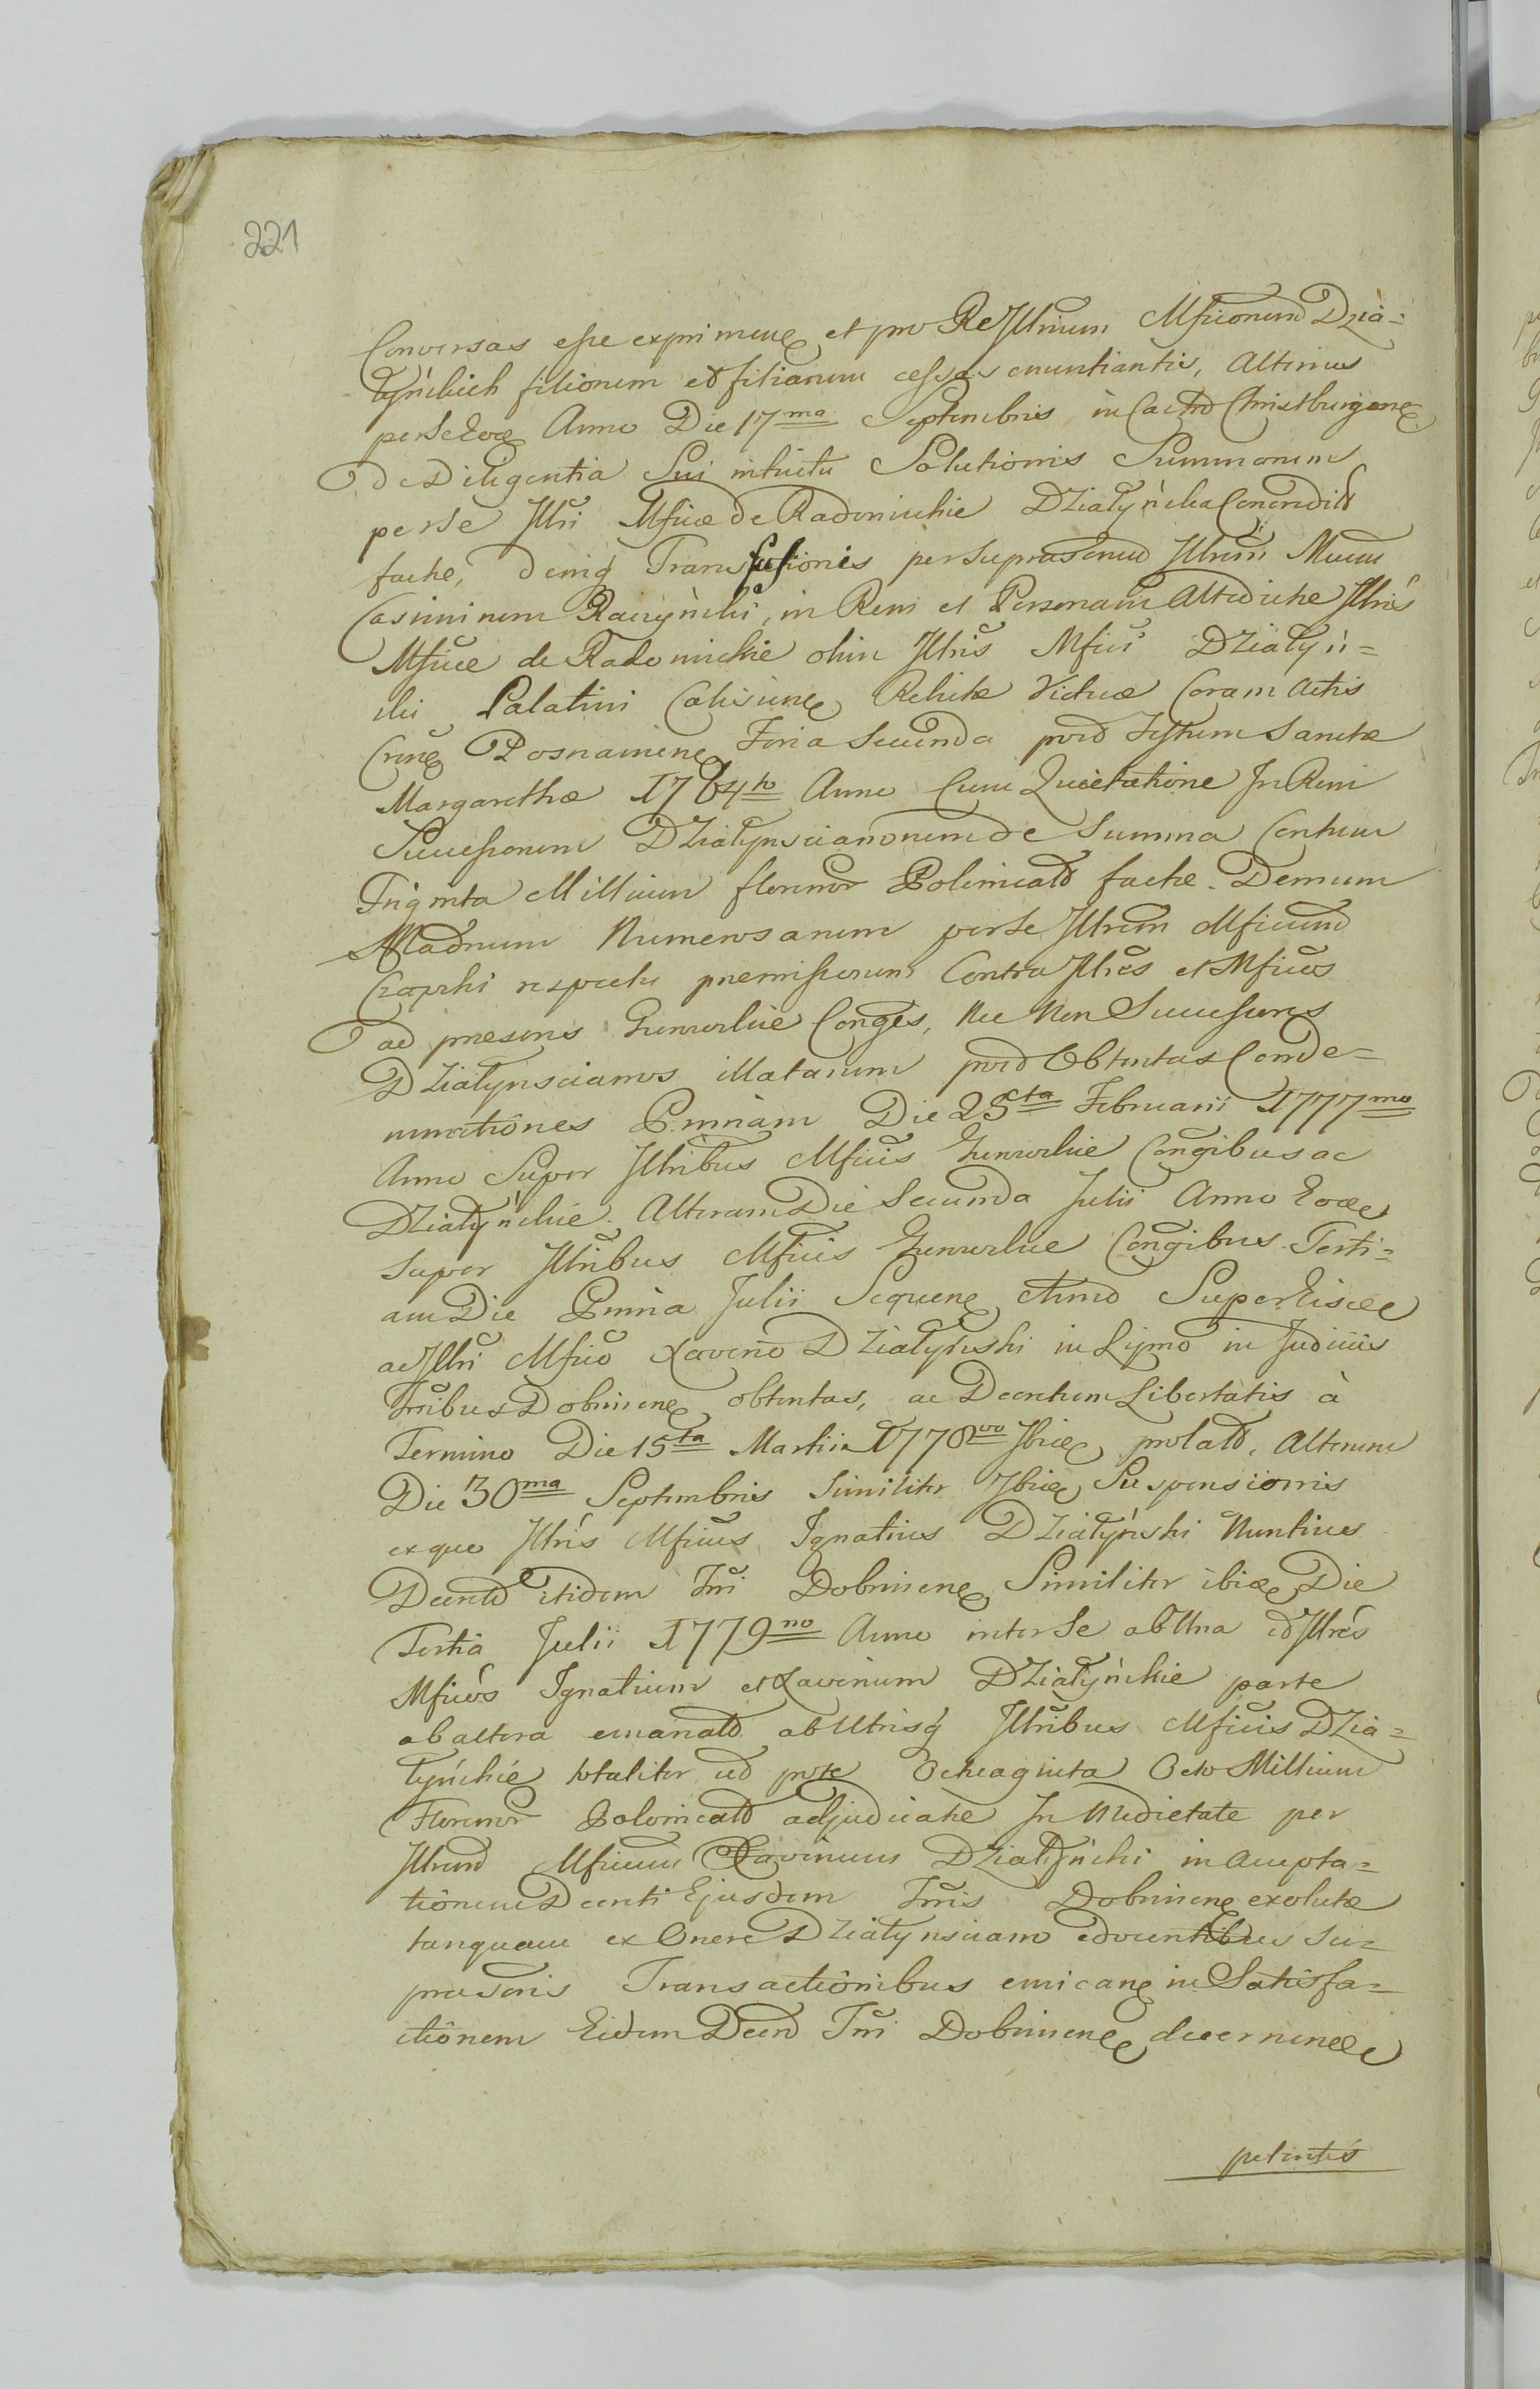 221
Conversas esse exprimeñ et pro Re Illrium Mficorum Dzia=
łyńskich filiorum et filiarum cessas enuntiantis, Alterius
per se Eoð Anno Die 17ma Septembris in Castro Christburgeñ
de Diligentia Sui intuitu Solutionis Summarum
per se Illri Mficæ de Radomickie Działyńska
factæ, deniq Transfusionis per suprascriptum Illrem Mcum
Casimirum Raczyński, in Rem et Personam Altedictæ Illris
Mficæ de Radomickie olim Illris Mfici Działyń=
ski Palatini Calisieñ Relictæ Viduæ Coram Actis
Posnanieñ Feria Secunda post Festum Sanctæ
Margarethæ 1764to Anno Cum Quietatione In Rem
Successorum Działynscianorum de Summa Centum
Triginta Millium florenor Polonicalð factæ. Demum
Citaðnum Numerosarum per se Illrem Mficum
Czapski respectu præmissorum Contra Illres et Mficos
ad præsens Conges, Nec Non Successores
Działynscianos illatarum post Obtentas Conde=
mnationes Primam Die 25ta Februarii 1777mo
Anno Super Illribus Mficis Congibus ac
Działyńskie. Alteram Die Secunda Julii Anno Eoðe
super Illribus Mficis Congibus. Terti=
am Die Prima Julii Sequeñ Anno Super Eisde
ac Illri Mfico Xaverio Działyński in Lipno in Judiciis
Trñlibus Dobrineñ obtentas, ac Decretum Libertatis à
Termino Die 15ta Martii 1778vo Ibiðe prolatð. Alterum
Die 30ma Septembris Similiter Ibiðe Suspensionis
ex quo Illris Mficus Ignatius Działyński Nuntius
Decretð itidem Trñi Dobrineñ Similiter ibiðe Die
Tertia Julii 1779no Anno inter se ab Una et Illres
Mficos Ignatium et Xaverium Działyńskie parte
ab altera emanatð ab Utrisq Illribus Mficis Dzia=
łyńskie totaliter Octuaginta Octo Millium
Florenor Polonicalð adjudicatæ In Medietate per
Illrem Mficum Xaverium Działyński in accepta=
tionem Decreti Ejusdem Trñis Dobrineñ exolutæ
tanquam ex Onere Działynsciano edocentibus su=
prascris Transactionibus emicañ in Satisfa=
ctionem Eidem Decrð Trñi Dobrineñ decerneñ
petentis